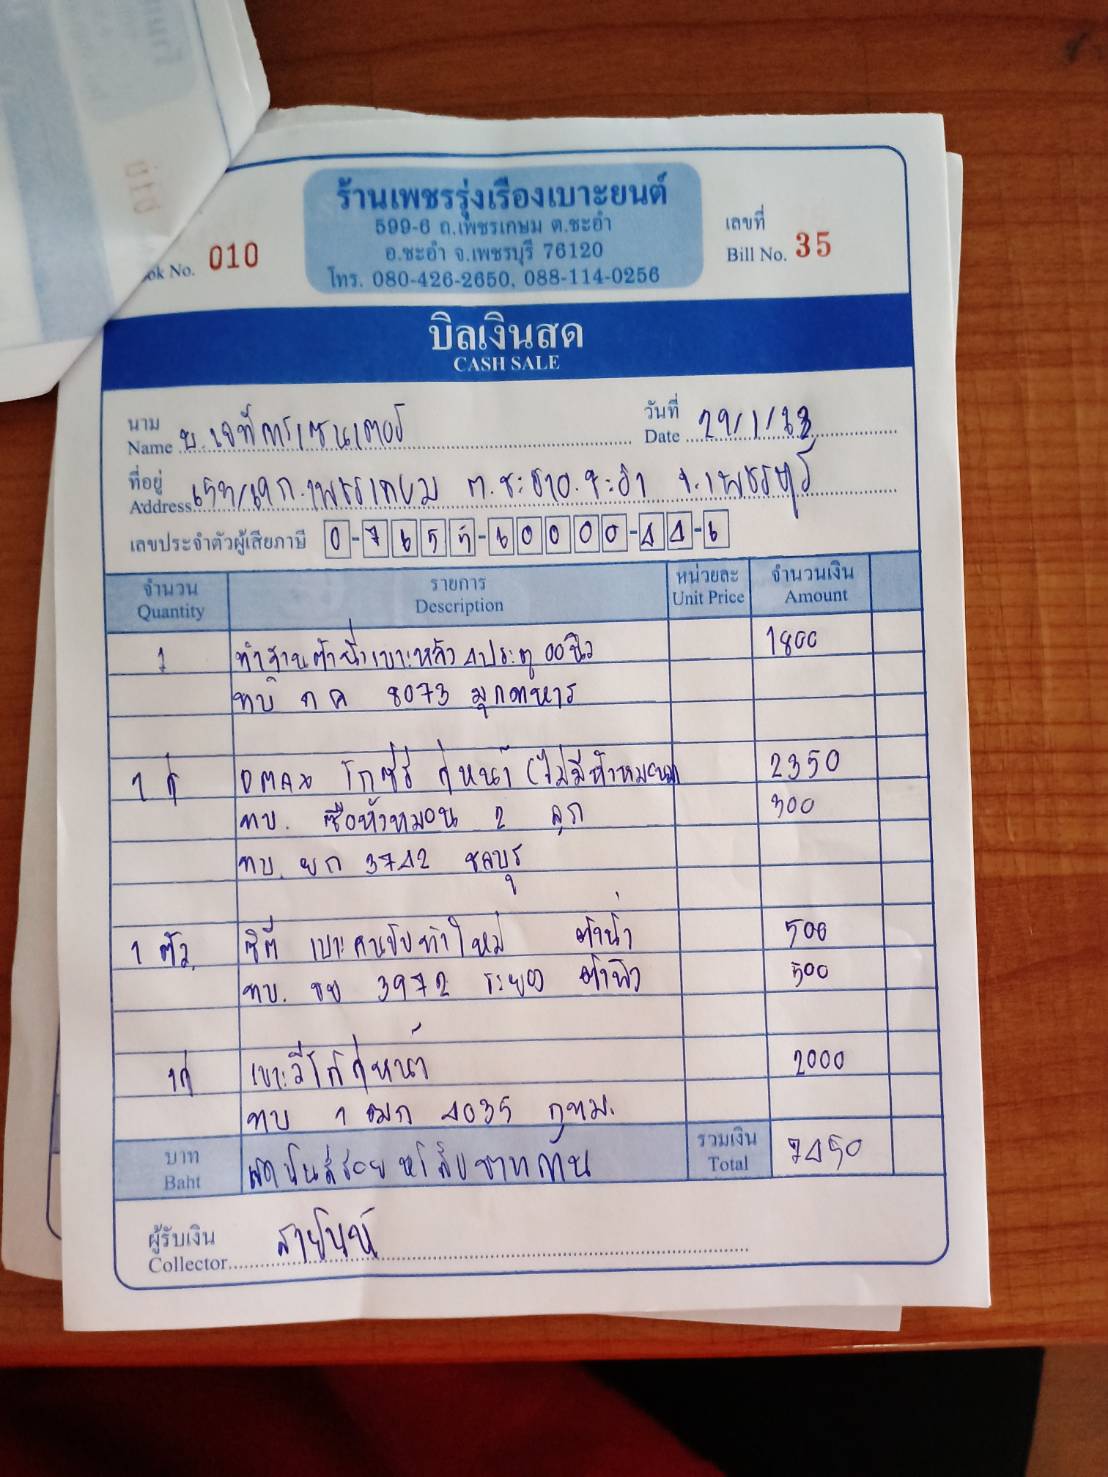 ร้านเพชรรุ่งเรืองเบาะยนต์
599-6 ถ.เพชรเกษม ต.ชะอำ
อ.ชะอำ จ.เพชรบุรี 76120
โทร. 080-426-2650, 088-114-0256
ok No. 010
เลขที่
Bill No. 35
บิลเงินสด
CASH SALE
นาม
Name บ.เจที คาร์เซนเตอร์
วันที่
Date 29/1/
ที่อยู่
Address ถ.เพชรเกษม ต.ชะอำ อ.ชะอำ จ.เพชรบุรี
เลขประจำตัวผู้เสียภาษี 0-7655-60000-44-6
จำนวน รายการ หน่วยละ จำนวนเงิน
Quantity Description Unit Price Amount
1 เบาะหลัง 4ประตู 1800
8073 มุกดาหาร
1 คู่ DMAX คู่หน้า (ไม่มีหัวหมอน) 2350
ทบ. ซื้อหัวหมอน 2 ลูก 300
ทบ. ยก 3742 ชลบุรี
1 ตัว ซิตี้ เบาะคนขับทำใหม่ 500
ทบ. ขข 3972 ระยอง 500
1คู่ เบาะวีโก้คู่หน้า 2000
ทบ 1 ฒก 4035 กทม.
บาท
Baht เจ็ดพันสี่ร้อยห้าสิบบาทถ้วน
รวมเงิน
Total 7450
ผู้รับเงิน
Collector